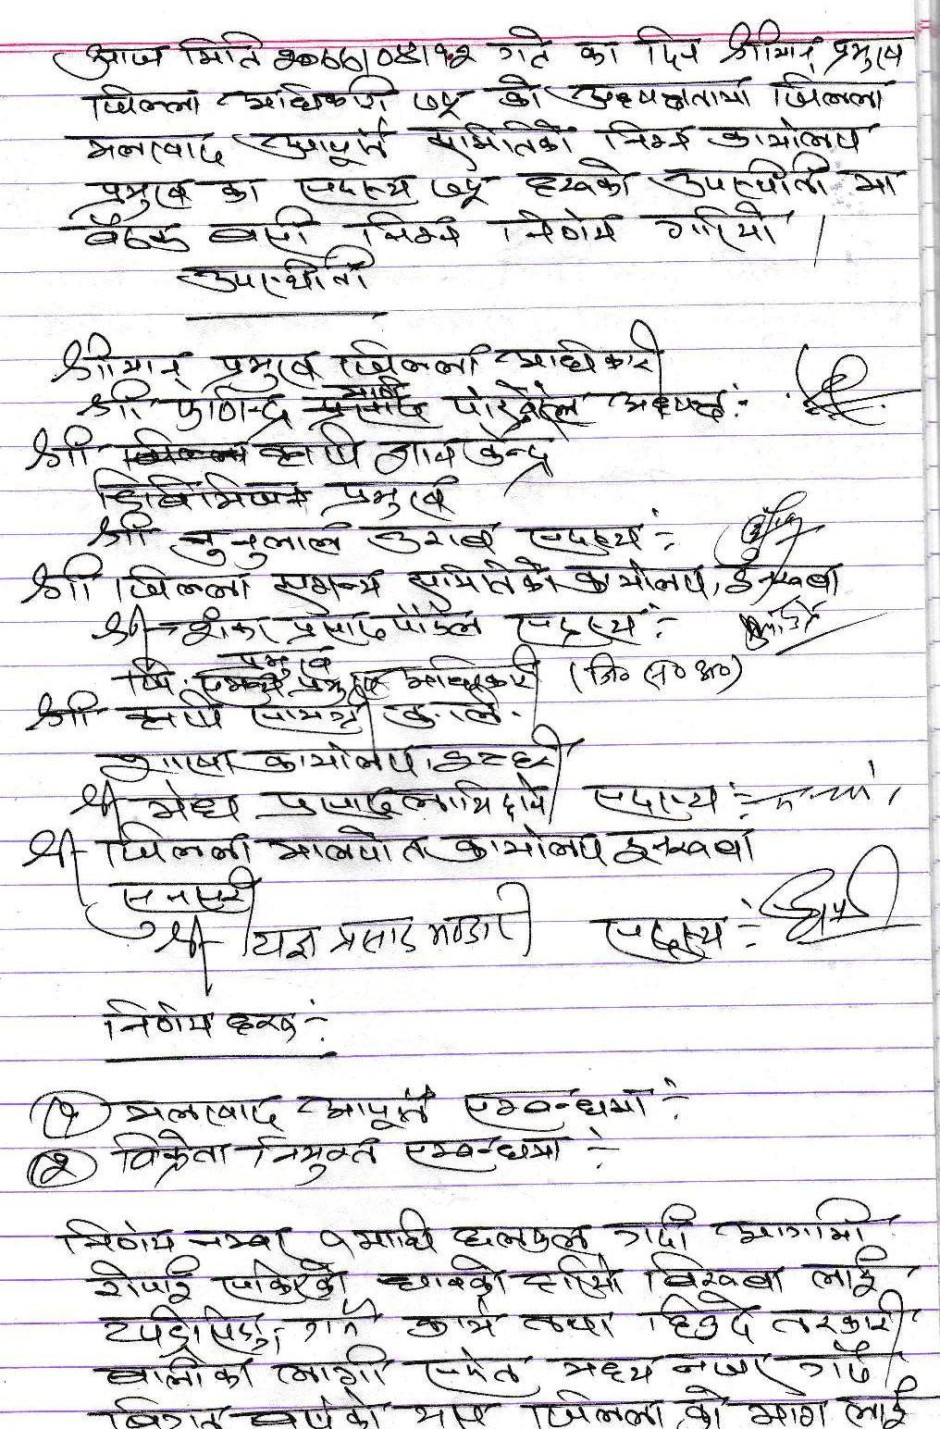 आज मिति २०६६।०४।१२ गते का दिन श्रीमान् प्रमुख
जिल्ला अधिकारी ज्यू को अध्यक्षतामा जिल्ला
मलखाद आपूर्ति समितिको निम्न कार्यालय
प्रमुख का सदस्य ज्यू हरुको उपस्थीती मा
बैठक बसी निम्न निर्णय गरियो ।
उपस्थीती
श्रीमान् प्रमुख जिल्ला अधिकारी
श्री फणिन्द्र मणी पोख्रेल अध्यक्ष:
श्री कृषि ज्ञान केन्द्र
प्रमुख
श्री सदस्य :-
श्री जिल्ला समन्वय समितिको कार्यालय, इनरुवा
श्री शंकर प्रसाद पौडेल सदस्य :-
प्रमुख
जि. समन्वय अधिकारी (जि० स० अ०)
श्री कृषि सामग्री कं. लि.
शाखा कार्यालय, इटहरी
श्री मेघ प्रसाद लामिछाने सदस्य :-
श्री जिल्ला मालपोत कार्यालय इनरुवा
सुनसरी
श्री यज्ञ प्रसाद भण्डारी सदस्य :-
निर्णय हरु :-
(१) मलखाद आपूर्ति सम्बन्धमा :-
(२) विक्रेता नियुक्त सम्बन्धमा :-
निर्णय नम्बर १ माथि छलफल गर्दा आगामी
रोपाई सकिएको धानको हरियो बिरुवा लाई
टपड्रेसिङ्ग गर्ने कार्य तथा हिउदे तरकारी
बालीका लागी समेत मध्य नजर गर्दै
बिगत वर्षको यस जिल्ला को माग लाई